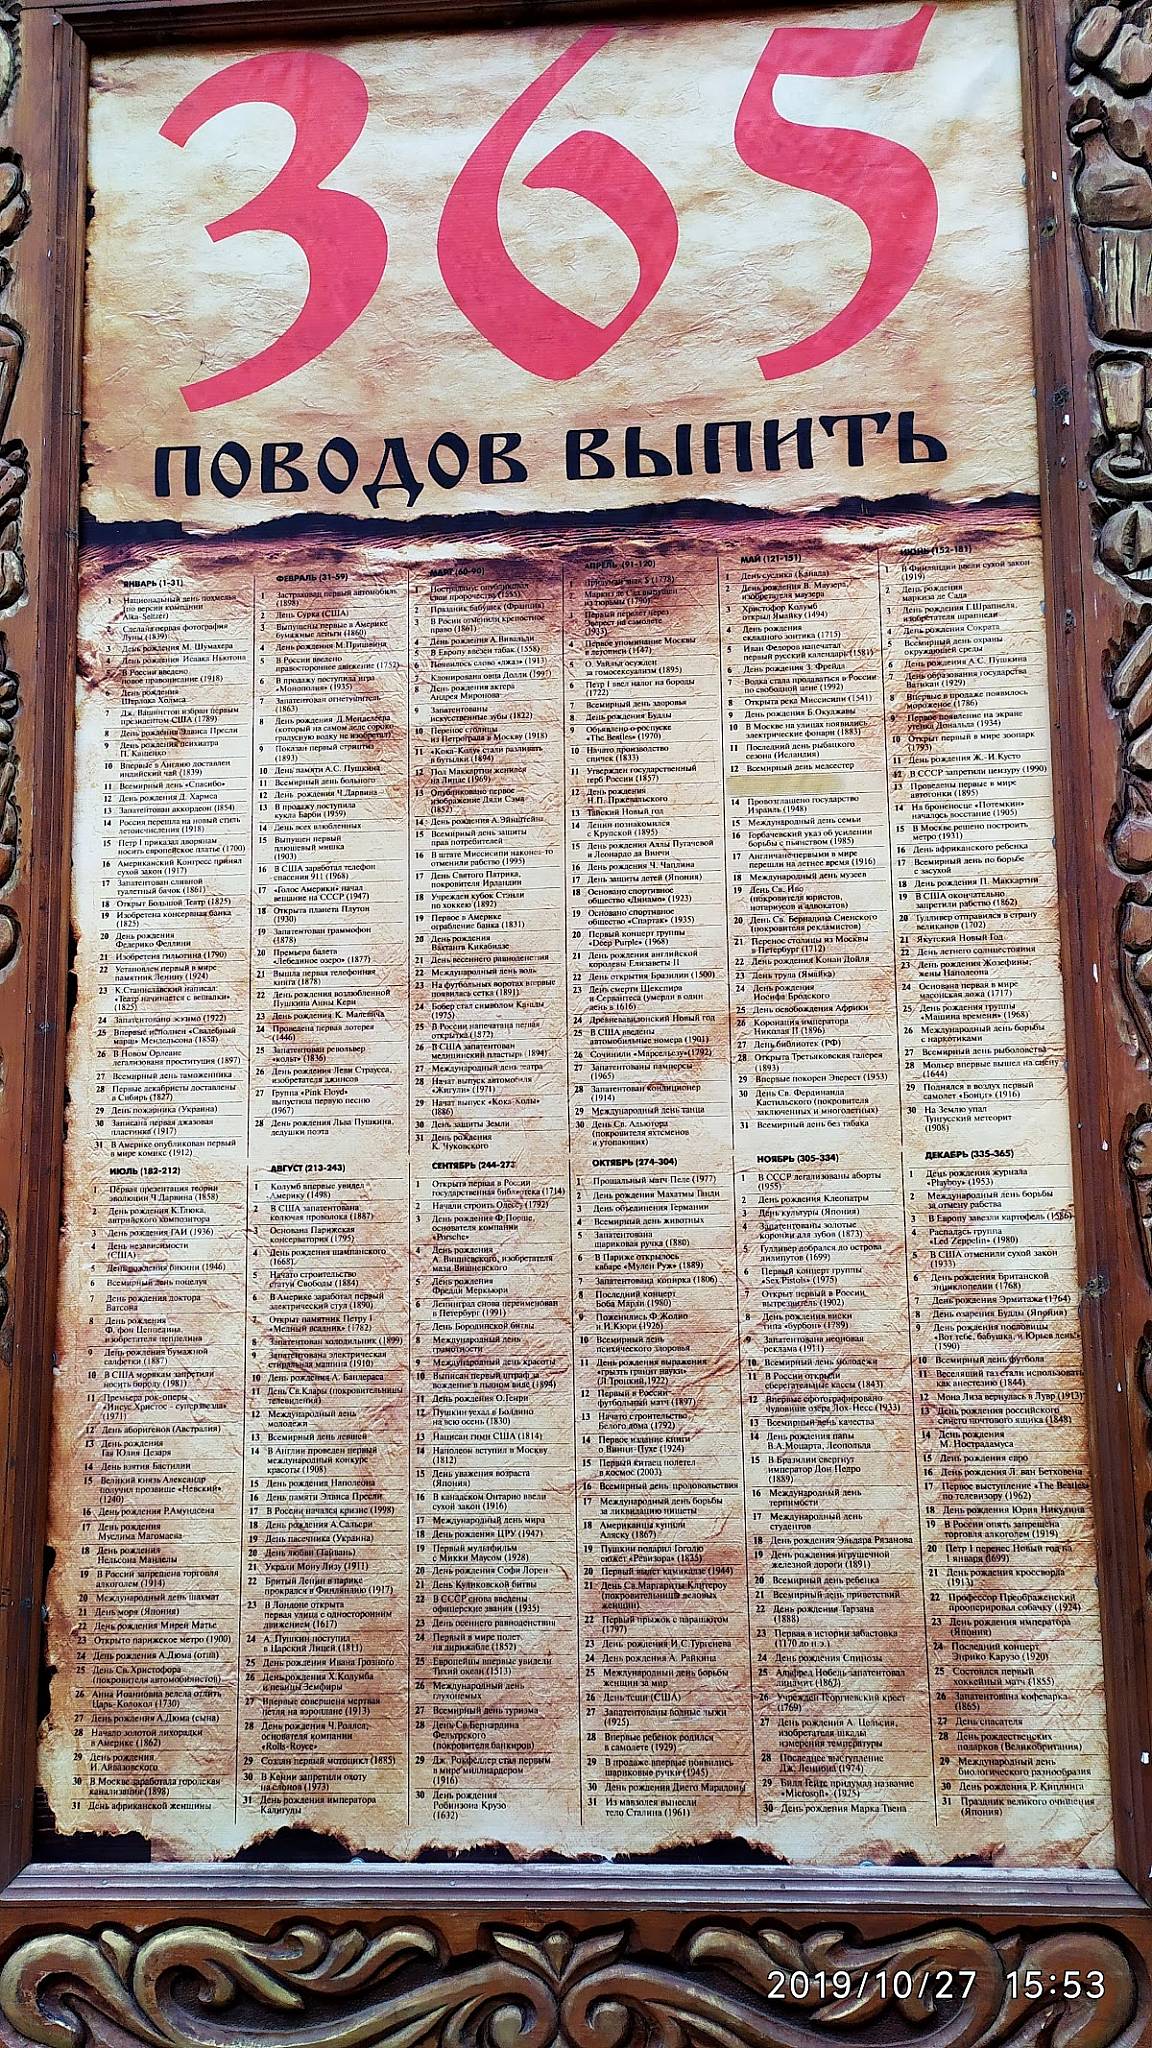 365
ПОВОДОВ ВЫПИТЬ
ЯНВАРЬ (1-31)
1 Национальный день похмелья
(по версии компании
Alka-Seltzer)
2 Сделана первая фотография
Луны (1839)
3 День рождения М. Шумахера
4 День рождения Исаака Ньютона
5 В России введено
новое правописание (1918)
6 День рождения
Шерлока Холмса
7 Дж. Вашингтон избран первым
президентом США (1789)
8 День рождения Элвиса Пресли
9 День рождения психиатра
П. Кащенко
10 Впервые в Англию доставлен
индийский чай (1839)
11 Всемирный день «Спасибо»
12 День рождения Д. Хармса
13 Запатентован аккордеон (1854)
14 Россия перешла на новый стиль
летоисчисления (1918)
15 Петр I приказал дворянам
носить европейское платье (1700)
16 Американский Конгресс принял
сухой закон (1917)
17 Запатентован сливной
туалетный бачок (1861)
18 Открыт Большой Театр (1825)
19 Изобретена консервная банка
(1825)
20 День рождения
Федерико Феллини
21 Изобретена гильотина (1790)
22 Установлен первый в мире
памятник Ленину (1924)
23 К.Станиславский написал:
«Театр начинается с вешалки»
(1825)
24 Запатентовано эскимо (1922)
25 Впервые исполнен «Свадебный
марш» Мендельсона (1858)
26 В Новом Орлеане
легализована проституция (1897)
27 Всемирный день таможенника
28 Первые декабристы доставлены
в Сибирь (1827)
29 День пожарника (Украина)
30 Записана первая джазовая
пластинка (1917)
31 В Америке опубликован первый
в мире комикс (1912)
ФЕВРАЛЬ (31-59)
1 Застрахован первый автомобиль
(1898)
2 День Сурка (США)
3 Выпущены первые в Америке
бумажные деньги (1860)
4 День рождения М.Пришвина
5 В России введено
правостороннее движение (1752)
6 В продажу поступила игра
«Монополия» (1935)
7 Запатентован огнетушитель
(1863)
8 День рождения Д.Менделеева
(который на самом деле сорока-
градусную водку не изобретал)
9 Показан первый стриптиз
(1893)
10 День памяти А.С. Пушкина
11 Всемирный день больного
12 День рождения Ч.Дарвина
13 В продажу поступила
кукла Барби (1959)
14 День всех влюбленных
15 Выпущен первый
плюшевый мишка
(1903)
16 В США заработал телефон
спасения 911 (1968)
17 «Голос Америки» начал
вещание на СССР (1947)
18 Открыта планета Плутон
(1930)
19 Запатентован граммофон
(1878)
20 Премьера балета
«Лебединое озеро» (1877)
21 Вышла первая телефонная
книга (1878)
22 День рождения возлюбленной
Пушкина Анны Керн
23 День рождения К. Малевича
24 Проведена первая лотерея
(1446)
25 Запатентован револьвер
«кольт» (1836)
26 День рождения Леви Страусса,
изобретателя джинсов
27 Группа «Pink Floyd»
выпустила первую песню
(1967)
28 День рождения Льва Пушкина,
дедушки поэта
МАРТ (60-90)
1 Нострадамус опубликовал
свои пророчества (1555)
2 Праздник бабушек (Франция)
3 В России отменили крепостное
право (1861)
4 День рождения А.Вивальди
5 В Европу ввезен табак (1558)
6 Появилось слово «джаз» (1913)
7 Клонирована овца Долли (1997)
8 День рождения актера
Андрея Миронова
9 Запатентованы
искусственные зубы (1822)
10 Перенос столицы
из Петрограда в Москву (1918)
11 «Кока-Колу» стали разливать
в бутылки (1894)
12 Пол Маккартни женился
на Линде (1969)
13 Опубликовано первое
изображение Дяди Сэма
(1852)
14 День рождения А.Эйнштейна
15 Всемирный день защиты
прав потребителей
16 В штате Миссисипи наконец-то
отменили рабство (1995)
17 День Святого Патрика,
покровителя Ирландии
18 Учрежден кубок Стэнли
по хоккею (1892)
19 Первое в Америке
ограбление банка (1831)
20 День рождения
Вахтанга Кикабидзе
21 День весеннего равноденствия
22 Международный день воды
23 На футбольных воротах впервые
появилась сетка (1891)
24 Бобер стал символом Канады
(1975)
25 В России напечатана первая
открытка (1872)
26 В США запатентован
медицинский пластырь (1894)
27 Международный день театра
28 Начат выпуск автомобиля
«Жигули» (1971)
29 Начат выпуск «Кока-Колы»
(1886)
30 День защиты Земли
31 День рождения
К. Чуковского
АПРЕЛЬ (91-120)
1 Придуман знак $ (1778)
2 Маркиз де Сад выпущен
из тюрьмы (1790)
3 Первый перелет через
Эверест на самолете
(1933)
4 Первое упоминание Москвы
в летописи (1147)
5 О. Уайльд осужден
за гомосексуализм (1895)
6 Петр I ввел налог на бороды
(1722)
7 Всемирный день здоровья
8 День рождения Будды
9 Объявлено о роспуске
«The Beatles» (1970)
10 Начато производство
спичек (1833)
11 Утвержден государственный
герб России (1857)
12 День рождения
Н.П. Пржевальского
13 Тайский Новый год
14 Ленин познакомился
с Крупской (1895)
15 День рождения Аллы Пугачевой
и Леонардо да Винчи
16 День рождения Ч. Чаплина
17 День защиты детей (Япония)
18 Основано спортивное
общество «Динамо» (1923)
19 Основано спортивное
общество «Спартак» (1935)
20 Первый концерт группы
«Deep Purple» (1968)
21 День рождения английской
королевы Елизаветы II
22 День открытия Бразилии (1500)
23 День смерти Шекспира
и Сервантеса (умерли в один
день в 1616)
24 Древневавилонский Новый год
25 В США введены
автомобильные номера (1901)
26 Сочинили «Марсельезу» (1792)
27 Запатентованы памперсы
(1965)
28 Запатентован кондиционер
(1914)
29 Международный день танца
30 День Св. Адьютора
(покровителя яхтсменов
и утопающих)
МАЙ (121-151)
1 День суслика (Канада)
2 День рождения В. Маузера,
изобретателя маузера
3 Христофор Колумб
открыл Ямайку (1494)
4 День рождения
складного зонтика (1715)
5 Иван Федоров напечатал
первый русский календарь (1581)
6 День рождения З. Фрейда
7 Водка стала продаваться в России
по свободной цене (1992)
8 Открыта река Миссисипи (1541)
9 День рождения Б.Окуджавы
10 В Москве на улицах появились
электрические фонари (1883)
11 Последний день рыбацкого
сезона (Исландия)
12 Всемирный день медсестер
14 Провозглашено государство
Израиль (1948)
15 Международный день семьи
16 Горбачевский указ об усилении
борьбы с пьянством (1985)
17 Англичане первыми в мире
перешли на летнее время (1916)
18 Международный день музеев
19 День Св. Иво
(покровителя юристов,
нотариусов и адвокатов)
20 День Св. Бернадина Сиенского
(покровителя рекламистов)
21 Перенос столицы из Москвы
в Петербург (1712)
22 День рождения Конан Дойля
23 День труда (Ямайка)
24 День рождения
Иосифа Бродского
25 День освобождения Африки
26 Коронация императора
Николая II (1896)
27 День библиотек (РФ)
28 Открыта Третьяковская галерея
(1893)
29 Впервые покорен Эверест (1953)
30 День Св. Фердинанда
Кастильского (покровителя
заключенных и многодетных)
31 Всемирный день без табака
ИЮНЬ (152-181)
1 В Финляндии ввели сухой закон
(1919)
2 День рождения
маркиза де Сада
3 День рождения Г.Шрапнеля,
изобретателя шрапнели
4 День рождения Сократа
5 Всемирный день охраны
окружающей среды
6 День рождения А.С. Пушкина
7 День образования государства
Ватикан (1929)
8 Впервые в продаже появилось
мороженое (1786)
9 Первое появление на экране
утенка Дональда (1934)
10 Открыт первый в мире зоопарк
(1793)
11 День рождения Ж.-И.Кусто
12 В СССР запретили цензуру (1990)
13 Проведены первые в мире
автогонки (1895)
14 На броненосце «Потемкин»
началось восстание (1905)
15 В Москве решено построить
метро (1931)
16 День африканского ребенка
17 Всемирный день по борьбе
с засухой
18 День рождения П. Маккартни
19 В США окончательно
запретили рабство (1862)
20 Гулливер отправился в страну
великанов (1702)
21 Якутский Новый Год
22 День летнего солнцестояния
23 День рождения Жозефины,
жены Наполеона
24 Основана первая в мире
масонская ложа (1717)
25 День рождения группы
«Машина времени» (1968)
26 Международный день борьбы
с наркотиками
27 Всемирный день рыболовства
28 Мольер впервые вышел на сцену
(1644)
29 Поднялся в воздух первый
самолет «Боинг» (1916)
30 На Землю упал
Тунгусский метеорит
(1908)
ИЮЛЬ (182-212)
1 Первая презентация теории
эволюции Ч.Дарвина (1858)
2 День рождения К.Глюка,
австрийского композитора
3 День рождения ГАИ (1936)
4 День независимости
(США)
5 День рождения бикини (1946)
6 Всемирный день поцелуя
7 День рождения доктора
Ватсона
8 День рождения
Ф. фон Цеппелина,
изобретателя цеппелина
9 День рождения бумажной
салфетки (1887)
10 В США морякам запретили
носить бороду (1981)
11 Премьера рок-оперы
«Иисус Христос - суперзвезда»
(1971)
12 День аборигенов (Австралия)
13 День рождения
Гая Юлия Цезаря
14 День взятия Бастилии
15 Великий князь Александр
получил прозвище «Невский»
(1240)
16 День рождения Р.Амундсена
17 День рождения
Муслима Магомаева
18 День рождения
Нельсона Манделы
19 В России запрещена торговля
алкоголем (1914)
20 Международный день шахмат
21 День моря (Япония)
22 День рождения Мирей Матье
23 Открыто парижское метро (1900)
24 День рождения А.Дюма (отца)
25 День Св.Христофора
(покровителя автомобилистов)
26 Анна Иоанновна велела отлить
Царь-Колокол (1730)
27 День рождения А.Дюма (сына)
28 Начало золотой лихорадки
в Америке (1862)
29 День рождения
И.Айвазовского
30 В Москве заработала городская
канализация (1898)
31 День африканской женщины
АВГУСТ (213-243)
1 Колумб впервые увидел
Америку (1498)
2 В США запатентована
колючая проволока (1887)
3 Основана Парижская
консерватория (1795)
4 День рождения шампанского
(1668)
5 Начато строительство
статуи Свободы (1884)
6 В Америке заработал первый
электрический стул (1890)
7 Открыт памятник Петру I
«Медный всадник» (1782)
8 Запатентован холодильник (1899)
9 Запатентована электрическая
стиральная машина (1910)
10 День рождения А. Бандераса
11 День Св.Клары (покровительницы
телевидения)
12 Международный день
молодежи
13 Всемирный день левшей
14 В Англии проведен первый
международный конкурс
красоты (1908)
15 День рождения Наполеона
16 День памяти Элвиса Пресли
17 В России начался кризис (1998)
18 День рождения А.Сальери
19 День пасечника (Украина)
20 День любви (Тайвань)
21 Украли Мону Лизу (1911)
22 Бритый Ленин в парике
прокрался в Финляндию (1917)
23 В Лондоне открыта
первая улица с односторонним
движением (1617)
24 А. Пушкин поступил
в Царский Лицей (1811)
25 День рождения Ивана Грозного
26 День рождения Х.Колумба
и певицы Земфиры
27 Впервые совершена мертвая
петля на аэроплане (1913)
28 День рождения Ч.Роллса,
основателя компании
«Rolls-Royce»
29 Создан первый мотоцикл (1885)
30 В Кении запретили охоту
на слонов (1973)
31 День рождения императора
Калигулы
СЕНТЯБРЬ (244-273
1 Открыта первая в России
государственная библиотека (1714)
2 Начали строить Одессу (1792)
3 День рождения Ф.Порше,
основателя компании
«Porsche»
4 День рождения
А. Вишневского, изобретателя
мази Вишневского
5 День рождения
Фредди Меркьюри
6 Ленинград снова переименован
в Петербург (1991)
7 День Бородинской битвы
8 Международный день
грамотности
9 Международный день красоты
10 Выписан первый штраф за
вождение в пьяном виде (1894)
11 День рождения О.Генри
12 Пушкин уехал в Болдино
на всю осень (1830)
13 Написан гимн США (1814)
14 Наполеон вступил в Москву
(1812)
15 День уважения возраста
(Япония)
16 В канадском Онтарио ввели
сухой закон (1916)
17 Международный день мира
18 День рождения ЦРУ (1947)
19 Первый мультфильм
с Микки Маусом (1928)
20 День рождения Софи Лорен
21 День Куликовской битвы
22 В СССР снова введены
офицерские звания (1935)
23 День осеннего равноденствия
24 Первый в мире полет
на дирижабле (1852)
25 Европейцы впервые увидели
Тихий океан (1513)
26 Международный день
глухонемых
27 Всемирный день туризма
28 День Св.Бернардина
Фельтрского
(покровителя банкиров)
29 Дж. Рокфеллер стал первым
в мире миллиардером
(1916)
30 День рождения
Робинзона Крузо
(1632)
ОКТЯБРЬ (274-304)
1 Прощальный матч Пеле (1977)
2 День рождения Махатмы Ганди
3 День объединения Германии
4 Всемирный день животных
5 Запатентована
шариковая ручка (1880)
6 В Париже открылось
кабаре «Мулен Руж» (1889)
7 Запатентована копирка (1806)
8 Последний концерт
Боба Марли (1980)
9 Поженились Ф.Жолио
и И.Кюри (1926)
10 Всемирный день
психического здоровья
11 День рождения выражения
«грызть гранит науки»
(Л.Троцкий,1922)
12 Первый в России
футбольный матч (1897)
13 Начато строительство
Белого дома (1792)
14 Первое издание книги
о Винни-Пухе (1924)
15 Первый китаец полетел
в космос (2003)
16 Всемирный день продовольствия
17 Международный день борьбы
за ликвидацию нищеты
18 Американцы купили
Аляску (1867)
19 Пушкин подарил Гоголю
сюжет «Ревизора» (1835)
20 Первый вылет камикадзе (1944)
21 День Св.Маргариты Клитероу
(покровительницы деловых
женщин)
22 Первый прыжок с парашютом
(1797)
23 День рождения И.С.Тургенева
24 День рождения А. Райкина
25 Международный день борьбы
женщин за мир
26 День тещи (США)
27 Запатентованы водные лыжи
(1925)
28 Впервые ребенок родился
в самолете (1929)
29 В продаже впервые появились
шариковые ручки (1945)
30 День рождения Диего Марадоны
31 Из мавзолея вынесли
тело Сталина (1961)
НОЯБРЬ (305-334)
1 В СССР легализованы аборты
(1955)
2 День рождения Клеопатры
3 День культуры (Япония)
4 Запатентованы золотые
коронки для зубов (1873)
5 Гулливер добрался до острова
лилипутов (1699)
6 Первый концерт группы
«Sex Pistols» (1975)
7 Открыт первый в России
вытрезвитель (1902)
8 День рождения виски
типа «бурбон» (1789)
9 Запатентована неоновая
реклама (1911)
10 Всемирный день молодежи
11 В России открыли
сберегательные кассы (1843)
12 Впервые сфотографировано
чудовище озера Лох-Несс (1933)
13 Всемирный день качества
14 День рождения папы
В.А.Моцарта, Леопольда
15 В Бразилии свергнут
император Дон Педро
(1889)
16 Международный день
терпимости
17 Международный день
студентов
18 День рождения Эльдара Рязанова
19 День рождения игрушечной
железной дороги (1891)
20 Всемирный день ребенка
21 Всемирный день приветствий
22 День рождения Тарзана
(1888)
23 Первая в истории забастовка
(1170 до н.э.)
24 День рождения Спинозы
25 Альфред Нобель запатентовал
динамит (1867)
26 Учрежден Георгиевский крест
(1769)
27 День рождения А. Цельсия,
изобретателя шкалы
измерения температуры
28 Последнее выступление
Дж. Леннона (1974)
29 Билл Гейтс придумал название
«Microsoft» (1975)
30 День рождения Марка Твена
ДЕКАБРЬ (335-365)
1 День рождения журнала
«Playboy» (1953)
2 Международный день борьбы
за отмену рабства
3 В Европу завезли картофель (1586)
4 Распалась группа
«Led Zeppelin» (1980)
5 В США отменили сухой закон
(1933)
6 День рождения Британской
энциклопедии (1768)
7 День рождения Эрмитажа (1764)
8 День озарения Будды (Япония)
9 День рождения пословицы
«Вот тебе, бабушка, и Юрьев день!»
(1590)
10 Всемирный день футбола
11 Веселящий газ стали использовать
как анестезию (1844)
12 Мона Лиза вернулась в Лувр (1913)
13 День рождения российского
синего почтового ящика (1848)
14 День рождения
М. Нострадамуса
15 День рождения евро
16 День рождения Л. ван Бетховена
17 Первое выступление «The Beatles»
по телевизору (1962)
18 День рождения Юрия Никулина
19 В России опять запрещена
торговля алкоголем (1919)
20 Петр I перенес Новый год на
1 января (1699)
21 День рождения кроссворда
(1913)
22 Профессор Преображенский
прооперировал собачку (1924)
23 День рождения императора
(Япония)
24 Последний концерт
Энрико Карузо (1920)
25 Состоялся первый
хоккейный матч (1855)
26 Запатентована кофеварка
(1865)
27 День спасателя
28 День рождественских
подарков (Великобритания)
29 Международный день
биологического разнообразия
30 День рождения Р. Киплинга
31 Праздник великого очищения
(Япония)
2019/10/27 15:53